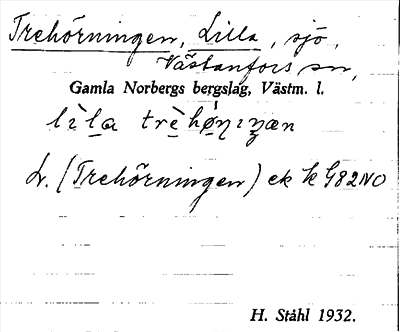 Trehörningen, Lilla, sjö,
Västanfors sn,
Gamla Norbergs bergslag, Västm. l.
lìla trèhǿṇıŋæn
L. (Trehörningen) ek k G82NO
H. Ståhl 1932.